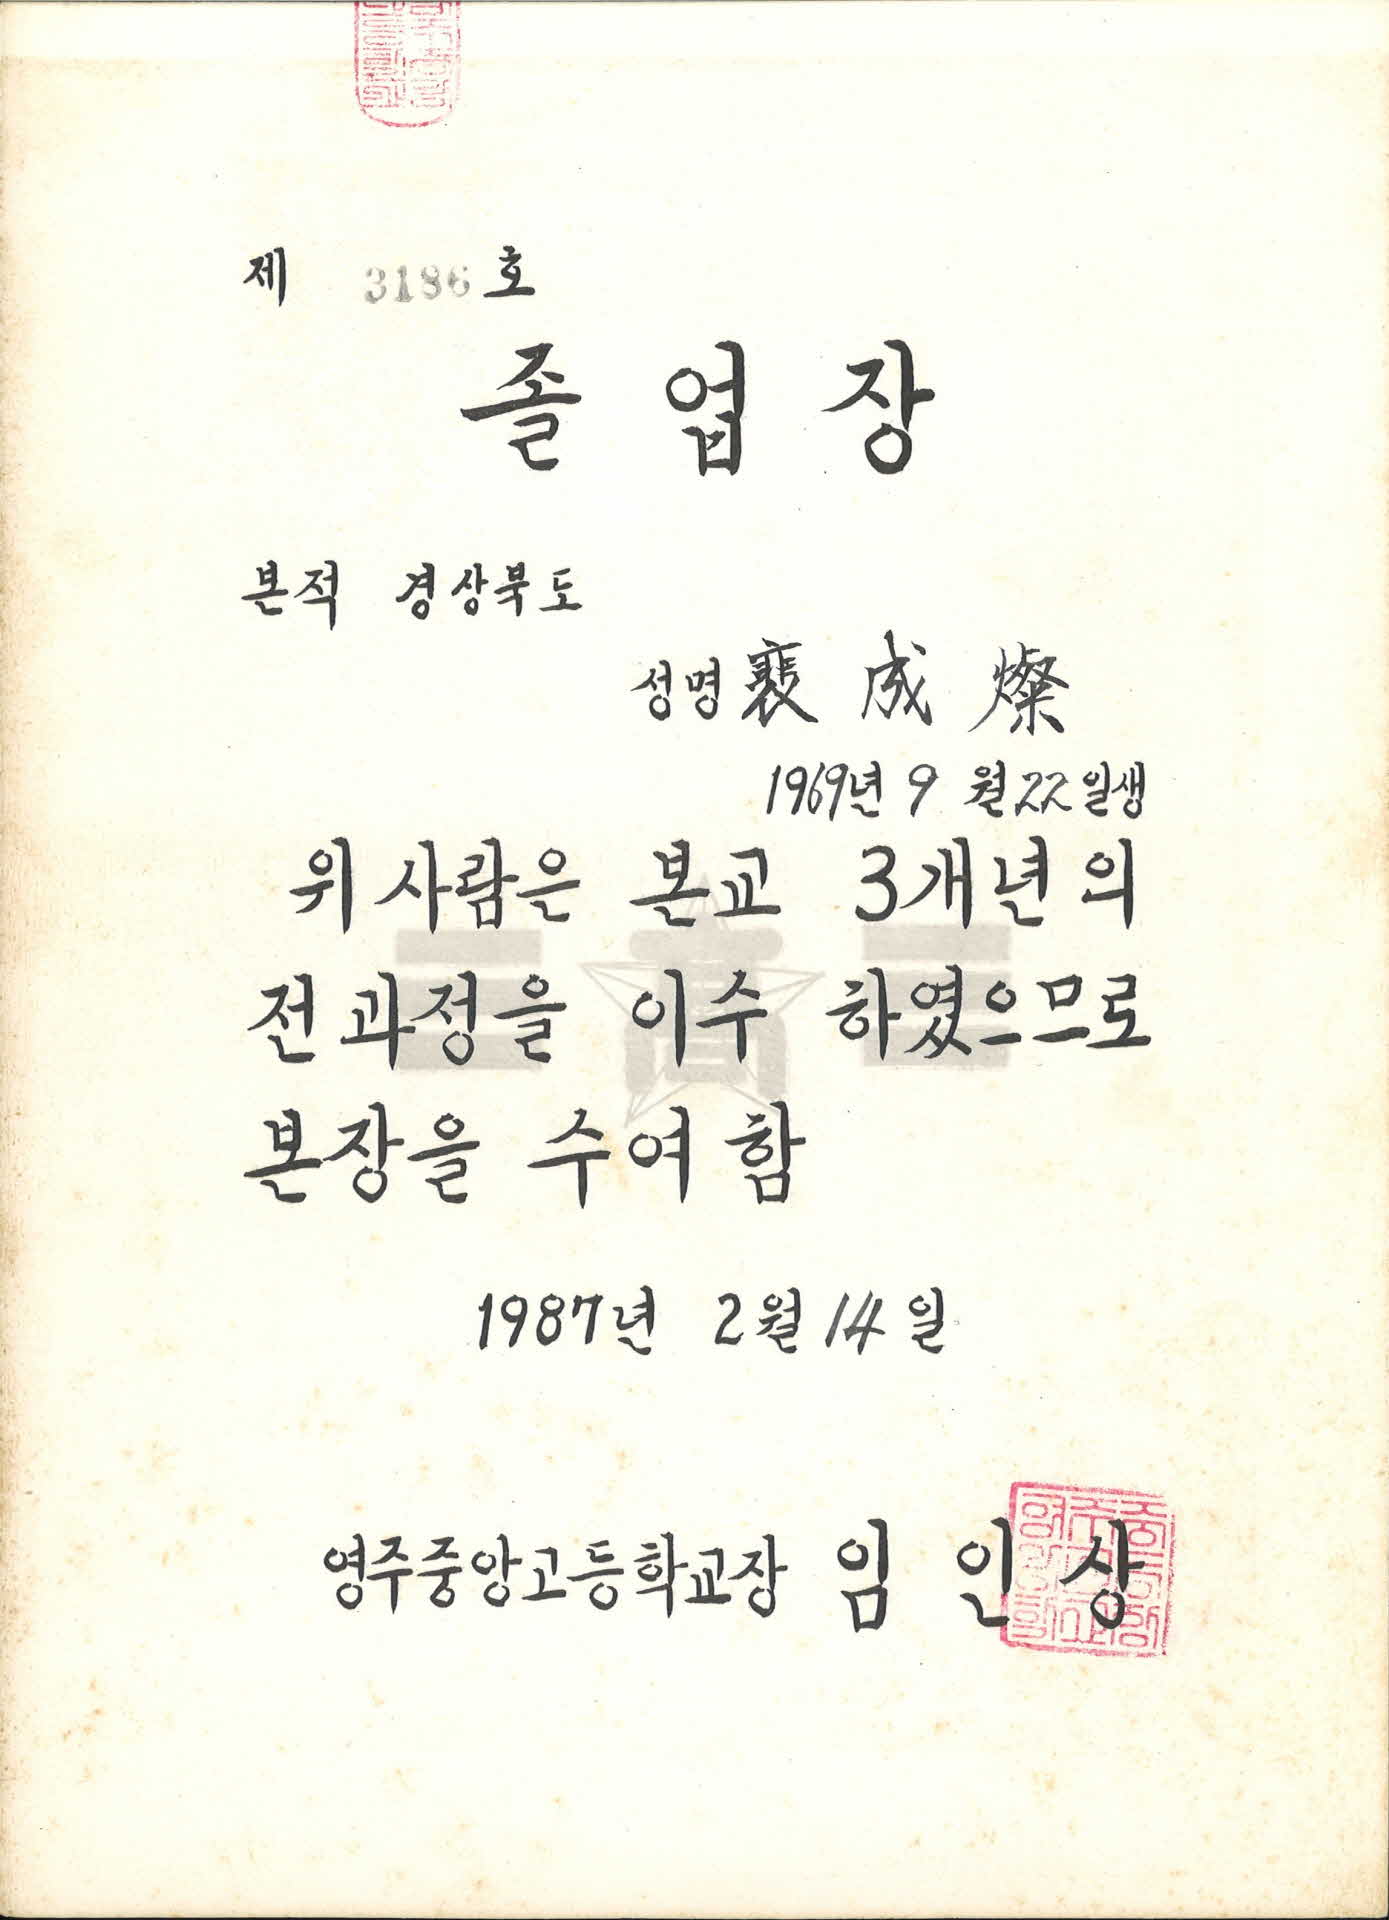 제 3186 호
졸업장
본적 경상북도
성명 裵成燦
1969년 9월 22일생
위 사람은 본교 3개년의
전과정을 이수 하였으므로
본장을 수여함
1987년 2월 14일
영주중앙고등학교장 임인상
高